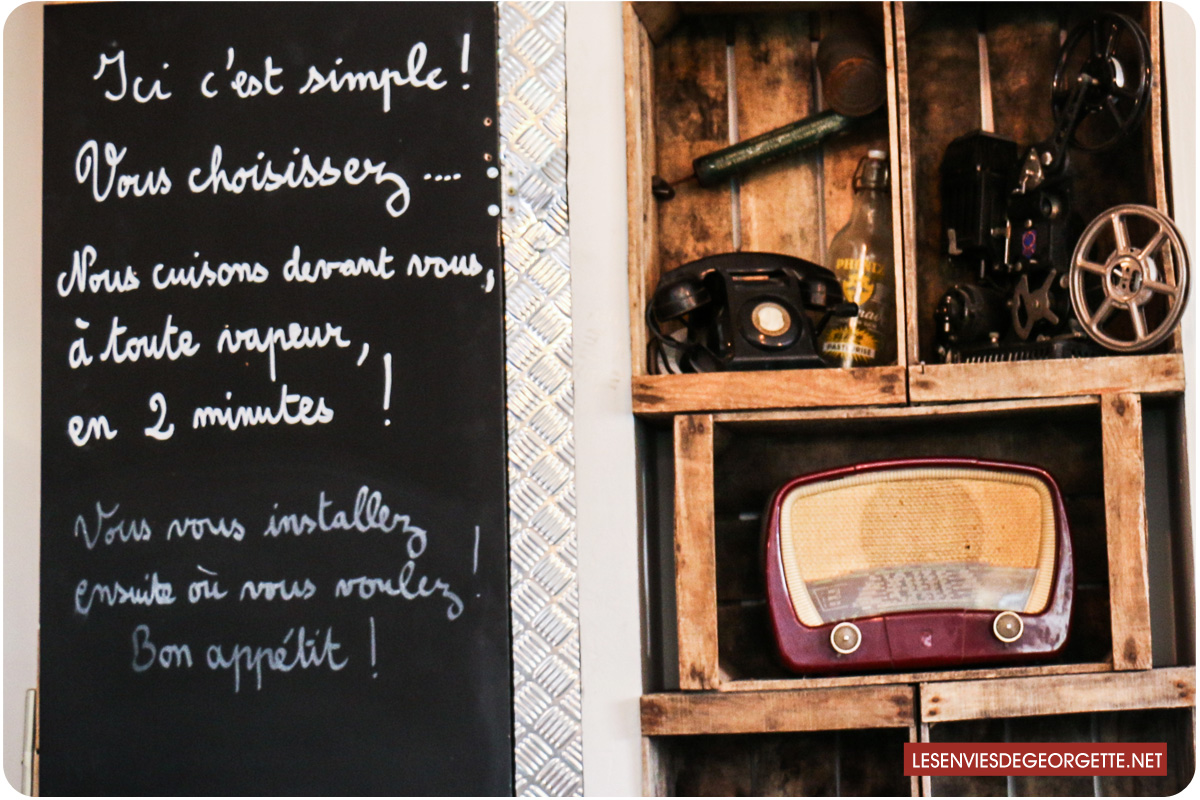 Ici c'est simple !
Vous choisissez ....
Nous cuisons devant vous,
à toute vapeur,
en 2 minutes !
Vous vous installez
ensuite où vous voulez !
Bon appétit !
PHENIX
PASTEURISE
LESENVIESDEGEORGETTE.NET